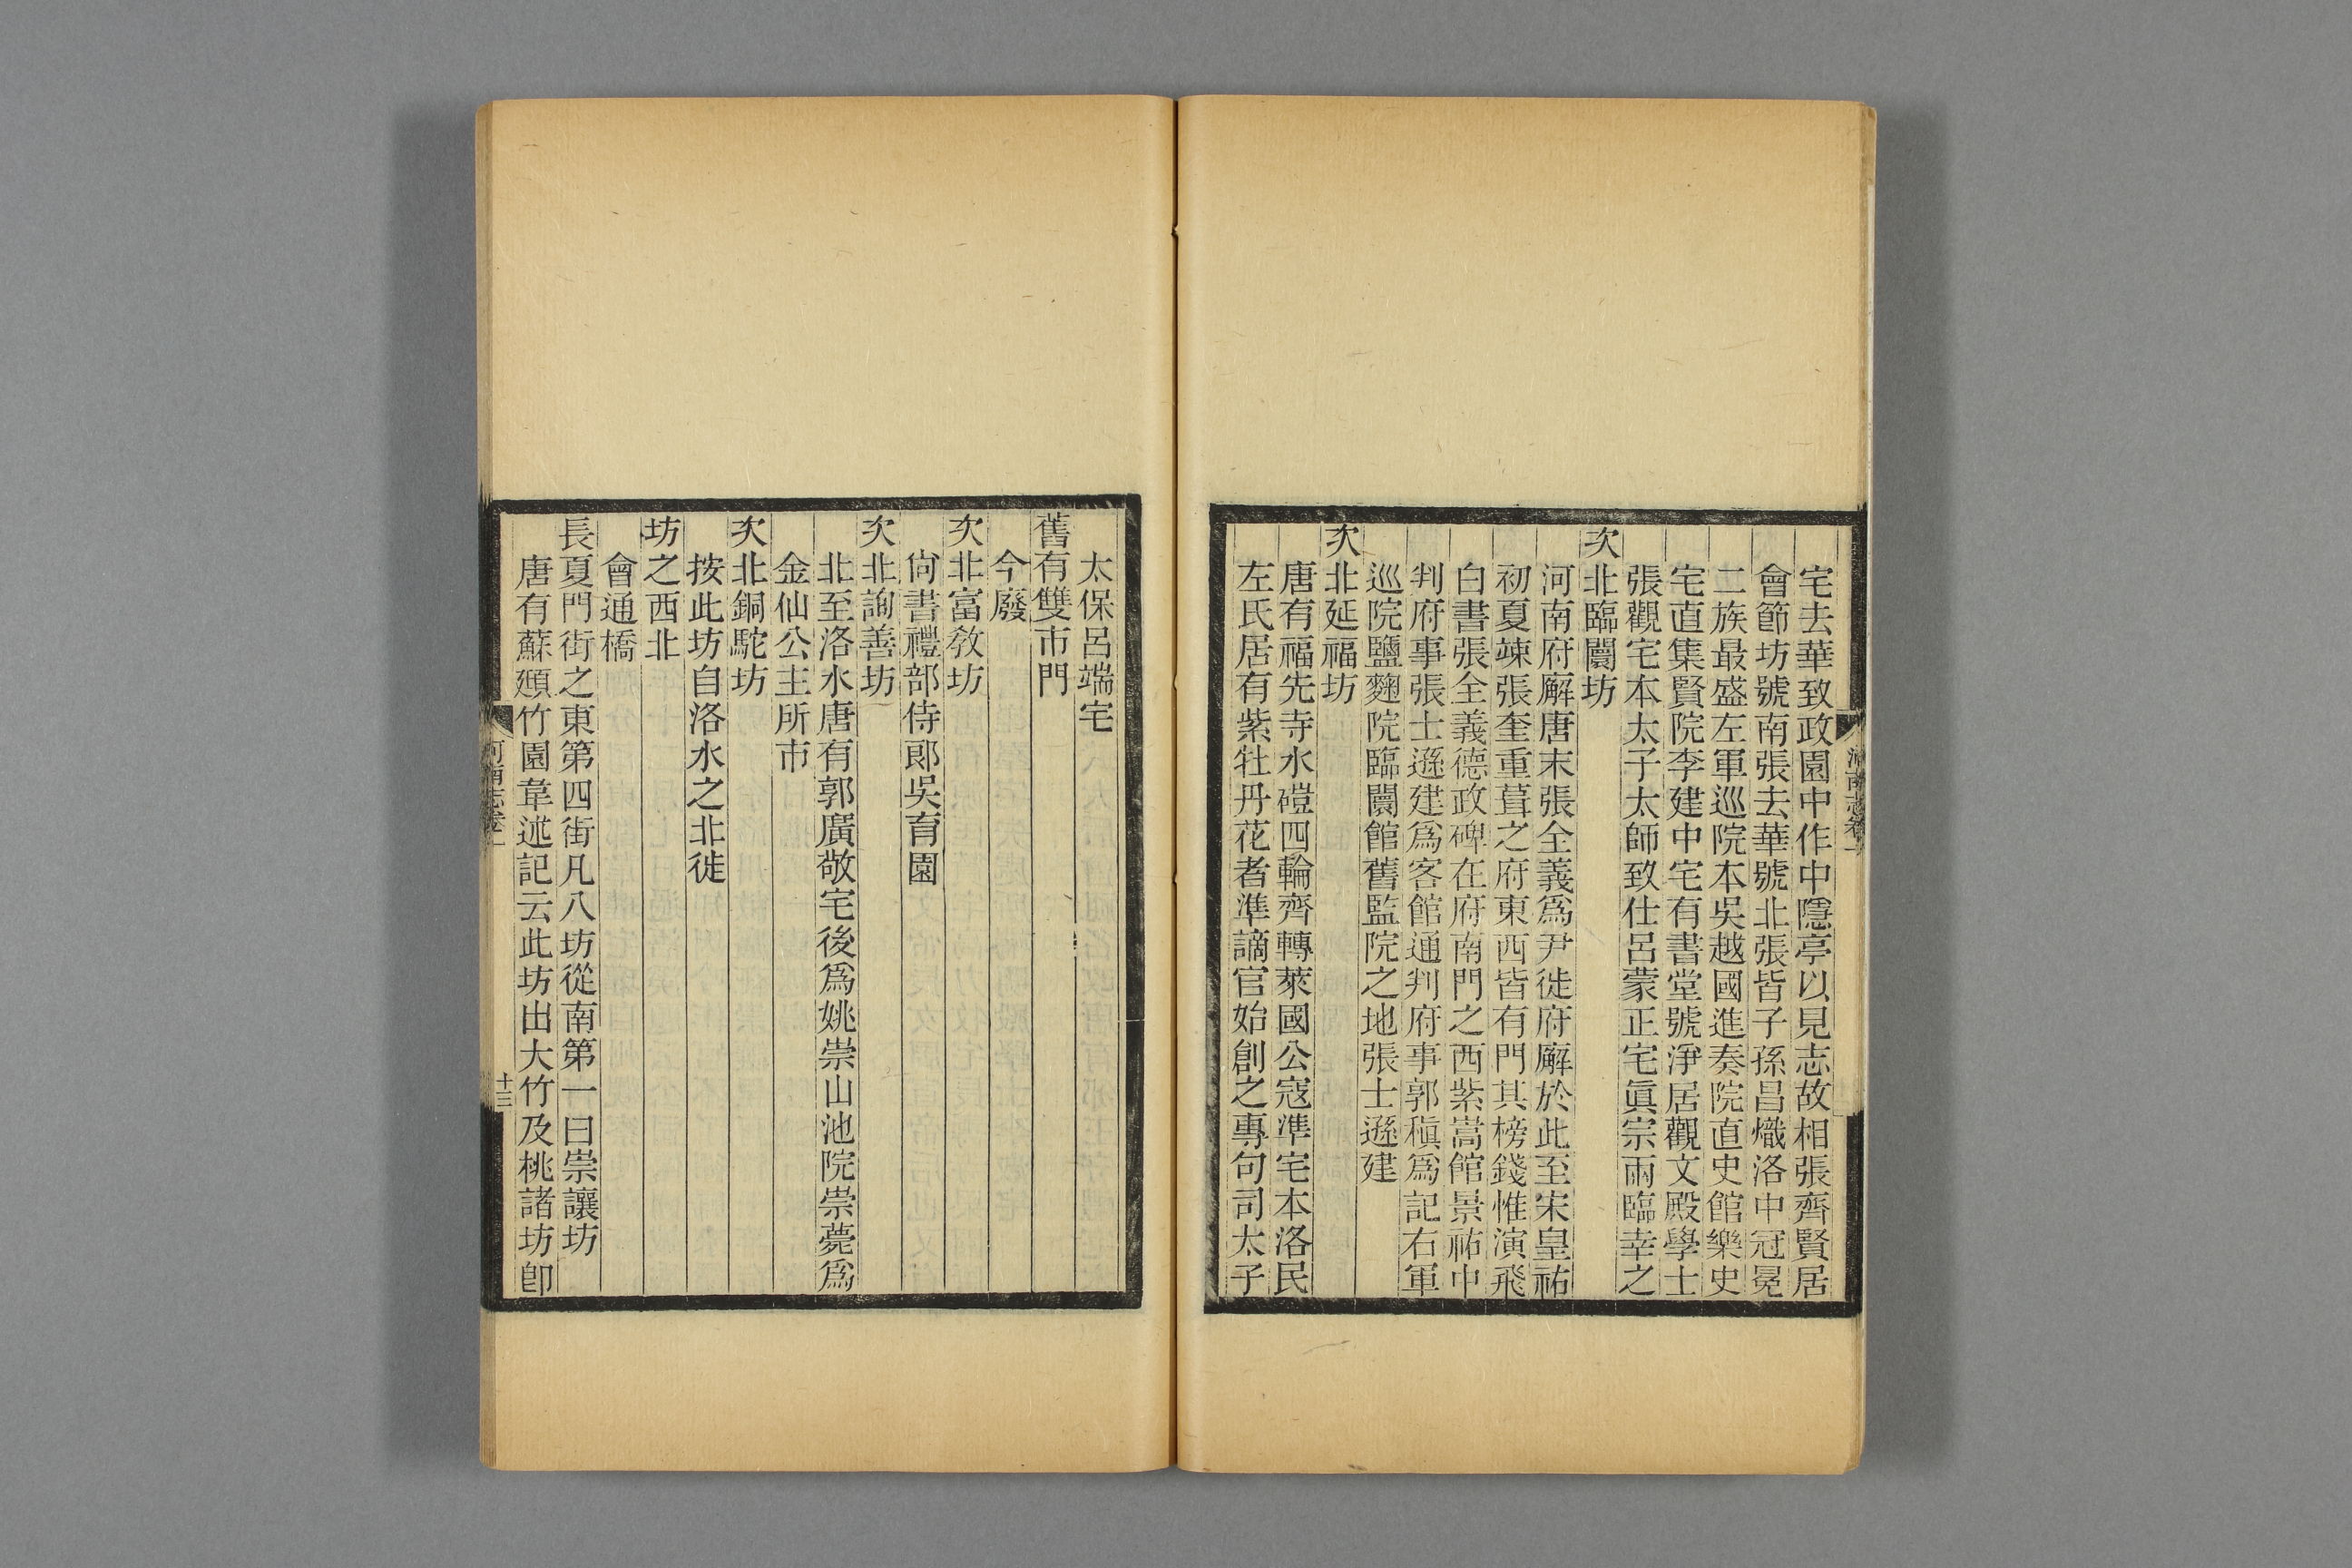 宅去華致政園中作中隱亭以見志故相張齊賢居
會節坊號南張去華號北張皆子孫昌熾洛中冠冕
二族最盛左軍巡院本吳越國進奏院直史館樂史
宅直集賢院李建中宅有書堂號淨居觀文殿學士
張觀宅本太子太師致仕呂蒙正宅眞宗兩臨幸之
次北臨闤坊
河南府廨唐末張全義爲尹徙府廨於此至宋皇祐
初夏竦張奎重葺之府東西皆有門其榜錢惟演飛
白書張全義德政碑在府南門之西紫嵩館景祐中
判府事張士遜建爲客館通判府事郭稹爲記右軍
巡院鹽麴院臨闤館舊監院之地張士遜建
次北延福坊
唐有福先寺水磑四輪齊轉萊國公寇準宅本洛民
左氏居有紫牡丹花者準謫官始創之專句司太子
太保呂端宅
舊有雙市門
今廢
次北富敎坊
尙書禮部侍郞吳育園
次北詢善坊
北至洛水唐有郭廣敬宅後爲姚崇山池院崇薨爲
金仙公主所市
次北銅駝坊
按此坊自洛水之北徙
坊之西北
會通橋
長夏門街之東第四街凡八坊從南第一曰崇讓坊
唐有蘇頲竹園韋述記云此坊出大竹及桃諸坊卽
河南志卷一
十三